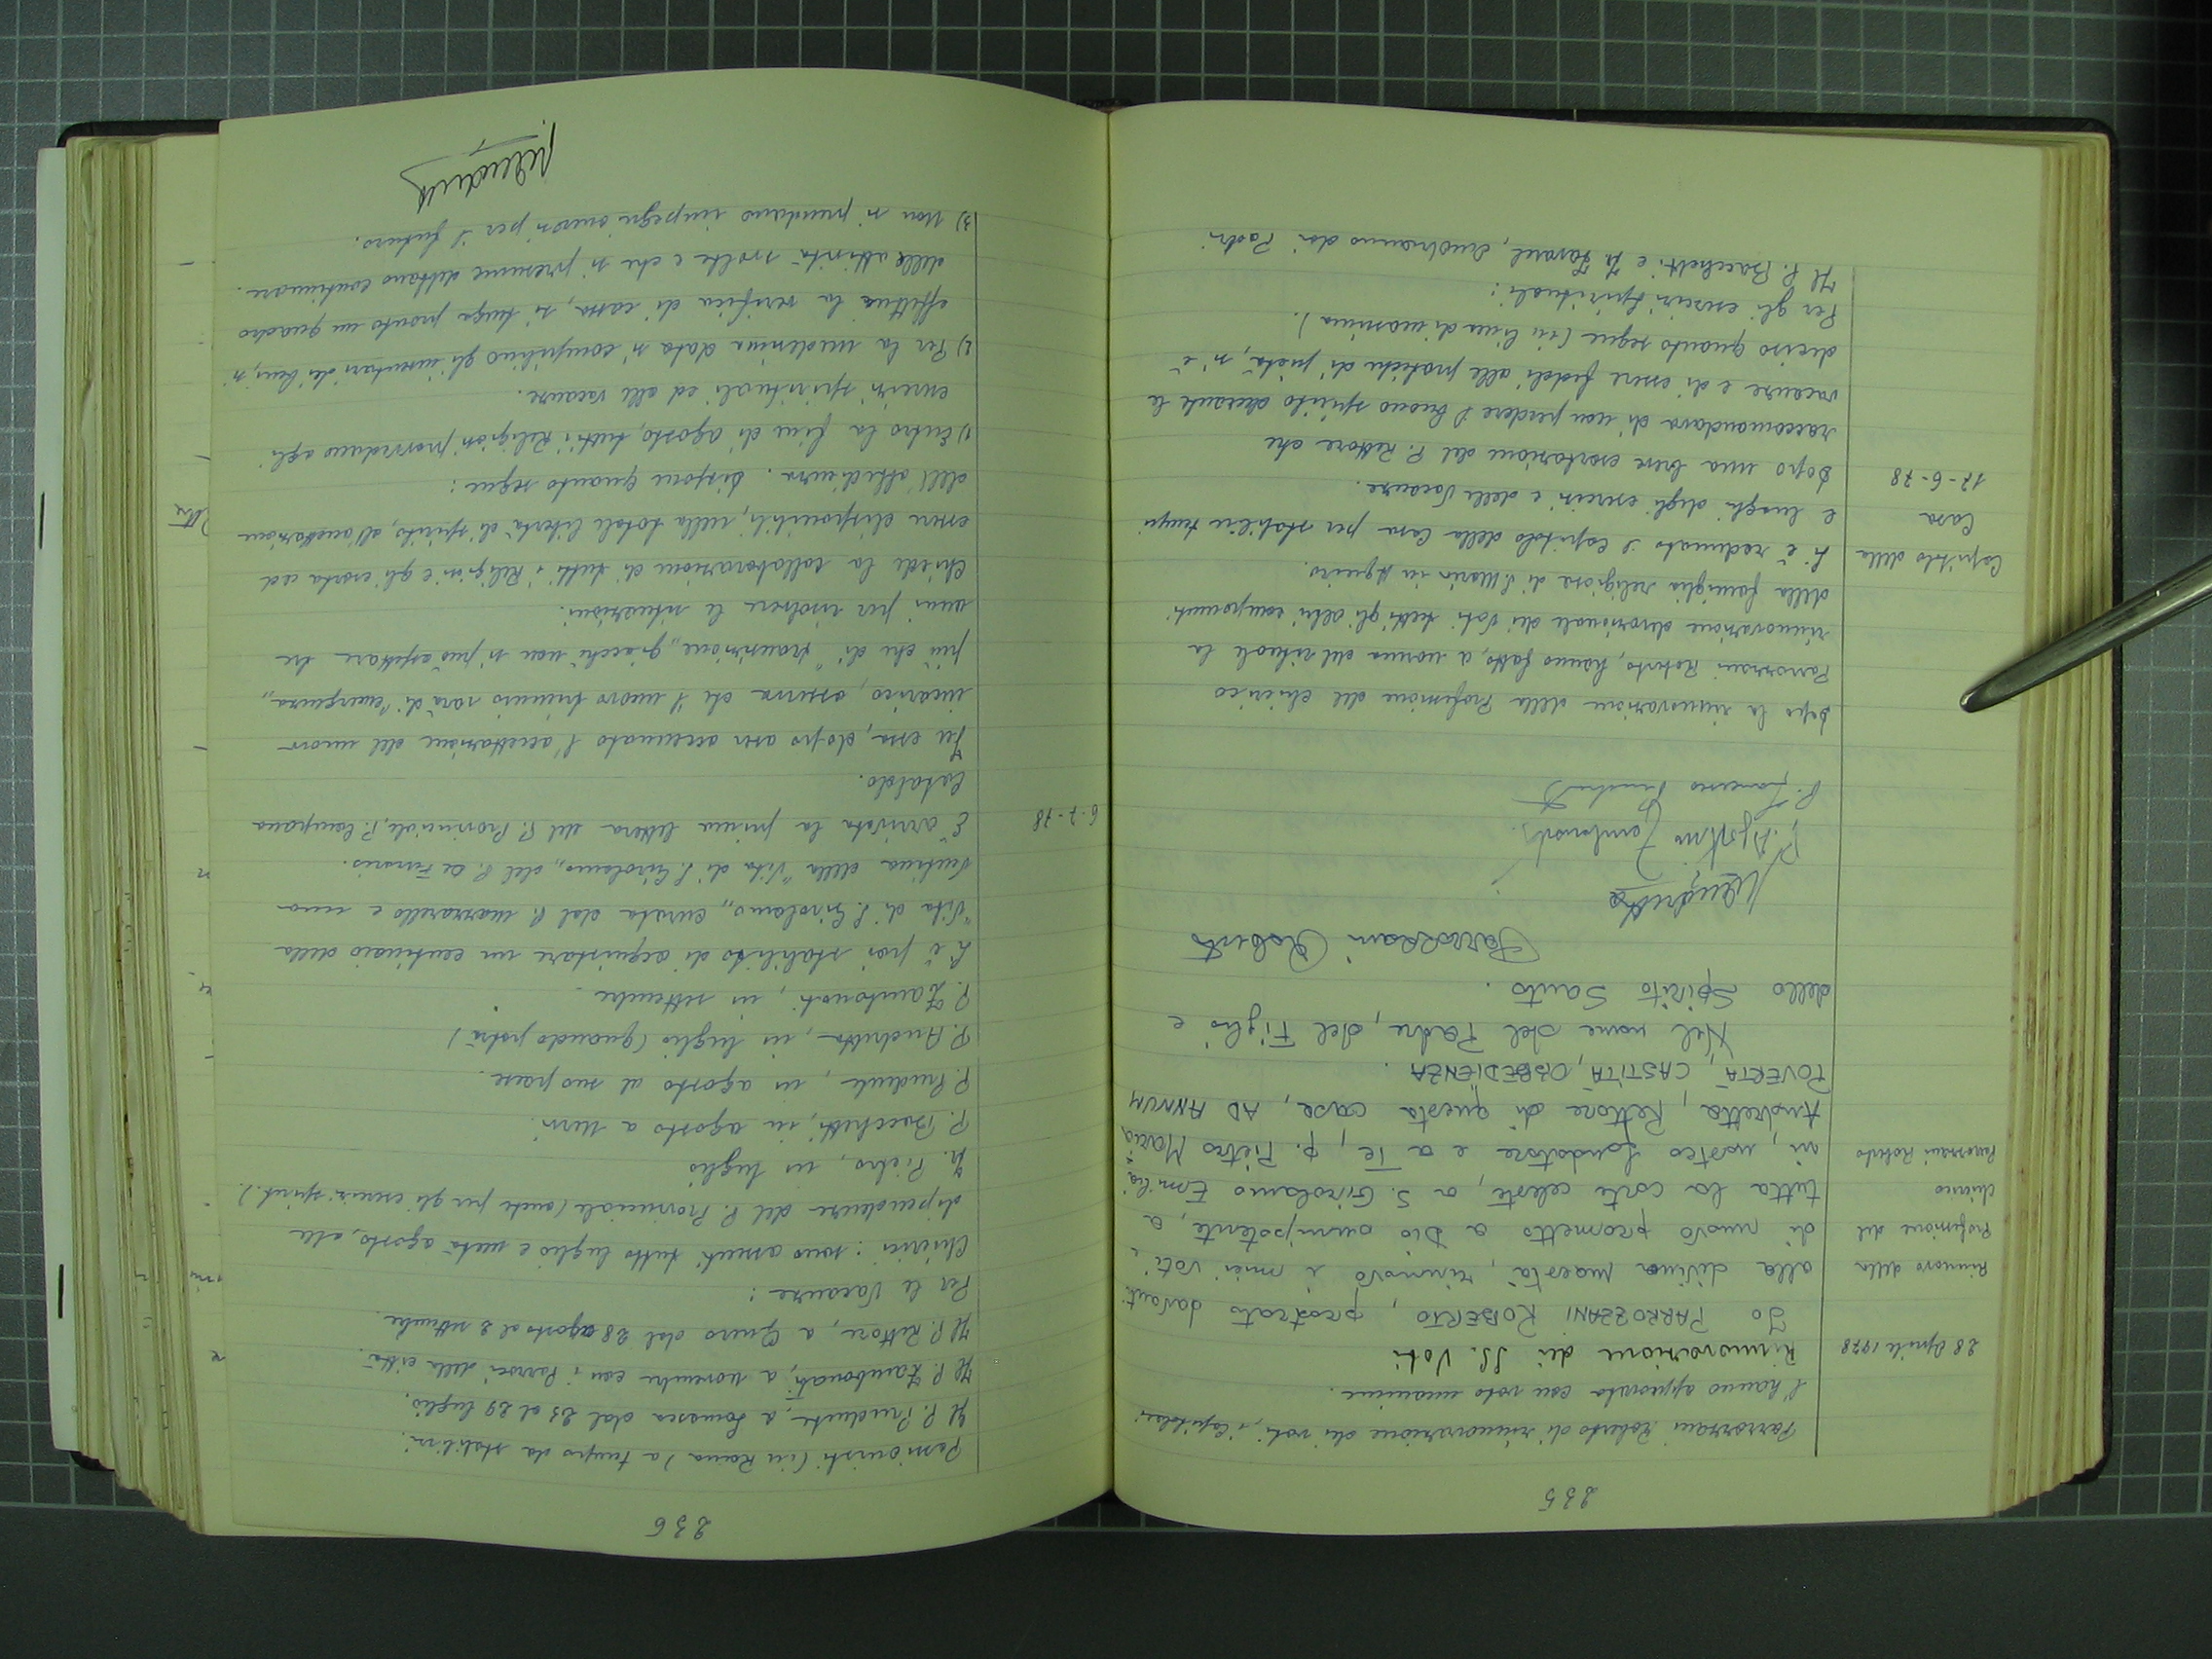 235
Parrozzani Roberto di rinnovazione dei voti, i Capitolari
l'hanno approvata con voto unanime.
28 Aprile 1978
Rinnovazione dei SS. Voti
Rinnovo della
Professione del
chierico
Parozzani Roberto
Io PARROZZANI ROBERTO, prostrato davanti
alla divina maestà, rinnovo i miei voti e
di nuovo prometto a Dio onnipotente, a
tutta la corte celeste, a S. Girolamo Emilia
ni, nostro fondatore e a Te, p. Pietro Maria
Andretta, Rettore di questa casa, AD ANNUM
POVERTÀ, CASTITÀ, OBBEDIENZA.
Nel nome del Padre, del Figlio e
dello Spirito Santo.
Parrozzani Roberto
P. Agostino Zambonati
P. Francesco
Dopo la rinnovazione della Professione del chierico
Parrozzani Roberto, hanno fatto, a norma del rituale la
rinnovazione devozionale dei Voti tutti gli altri componenti
della famiglia religiosa di S. Maria in Aquiro.
Capitolo della
Casa
17-6-78
Si è radunato il Capitolo della Casa per stabilire tempi
e luoghi degli esercizi e delle Vacanze.
Dopo una breve esortazione del P. Rettore che
raccomandava di non perdere il buono spirito durante le
vacanze e di essere fedeli alle pratiche di pietà, si è
deciso quanto segue (in linea di massima).
Per gli esercizi spirituali:
Il P. Bacchetti e Fr. , andranno dai Padri
236
Passionisti (in Roma) a tempo da stabilirsi.
Il P. Prudente, a Somasca dal 23 al 29 luglio.
Il P. Zambonati, a novembre con i Parroci della città.
Il P. Rettore, a Quero dal 28 agosto al 2 settembre.
Per le Vacanze:
Chierici: sono assenti tutto luglio e metà agosto, alle
dipendenze del P. Provinciale (anche per gli esercizi spirit.).
Fr. Pietro, in luglio
P. Bacchetti, in agosto a
P. Prudente, in agosto al suo paese.
P. Andretta, in luglio (quando potrà)
P. Zambonati, in settembre.
Si è poi stabilito di acquistare un centinaio della
"Vita di S. Girolamo" curata dal P. Mazzarello e una
ventina della "Vita di S. Girolamo" del P. De Ferraris.
6-7-78
È arrivata la prima lettera del P. Provinciale, P. Campana
Cataldo.
In essa, dopo aver accennato l'accettazione del nuovo
incarico, osserva che il nuovo triennio sarà di "emergenza"
più che di "transizione" giacchè non si può aspettare tre
anni per risolvere le situazioni.
Chiede la collaborazione di tutti i Religiosi e gli esorta ad
essere disponibili, nella totale libertà di spirito, all'accettazione
dell'obbedienza. Dispone quanto segue:
1) Entro la fine di agosto, tutti i Religiosi provvedano agli
esercizi spirituali ed alle vacanze.
2) Per la medesima data si compilino gli inventari dei beni, si
effettui la verifica di cassa, si tenga pronto un quadro
delle attività svolte e che si presume debbano continuare.
3) Non si prendano impegni onerosi per il futuro.